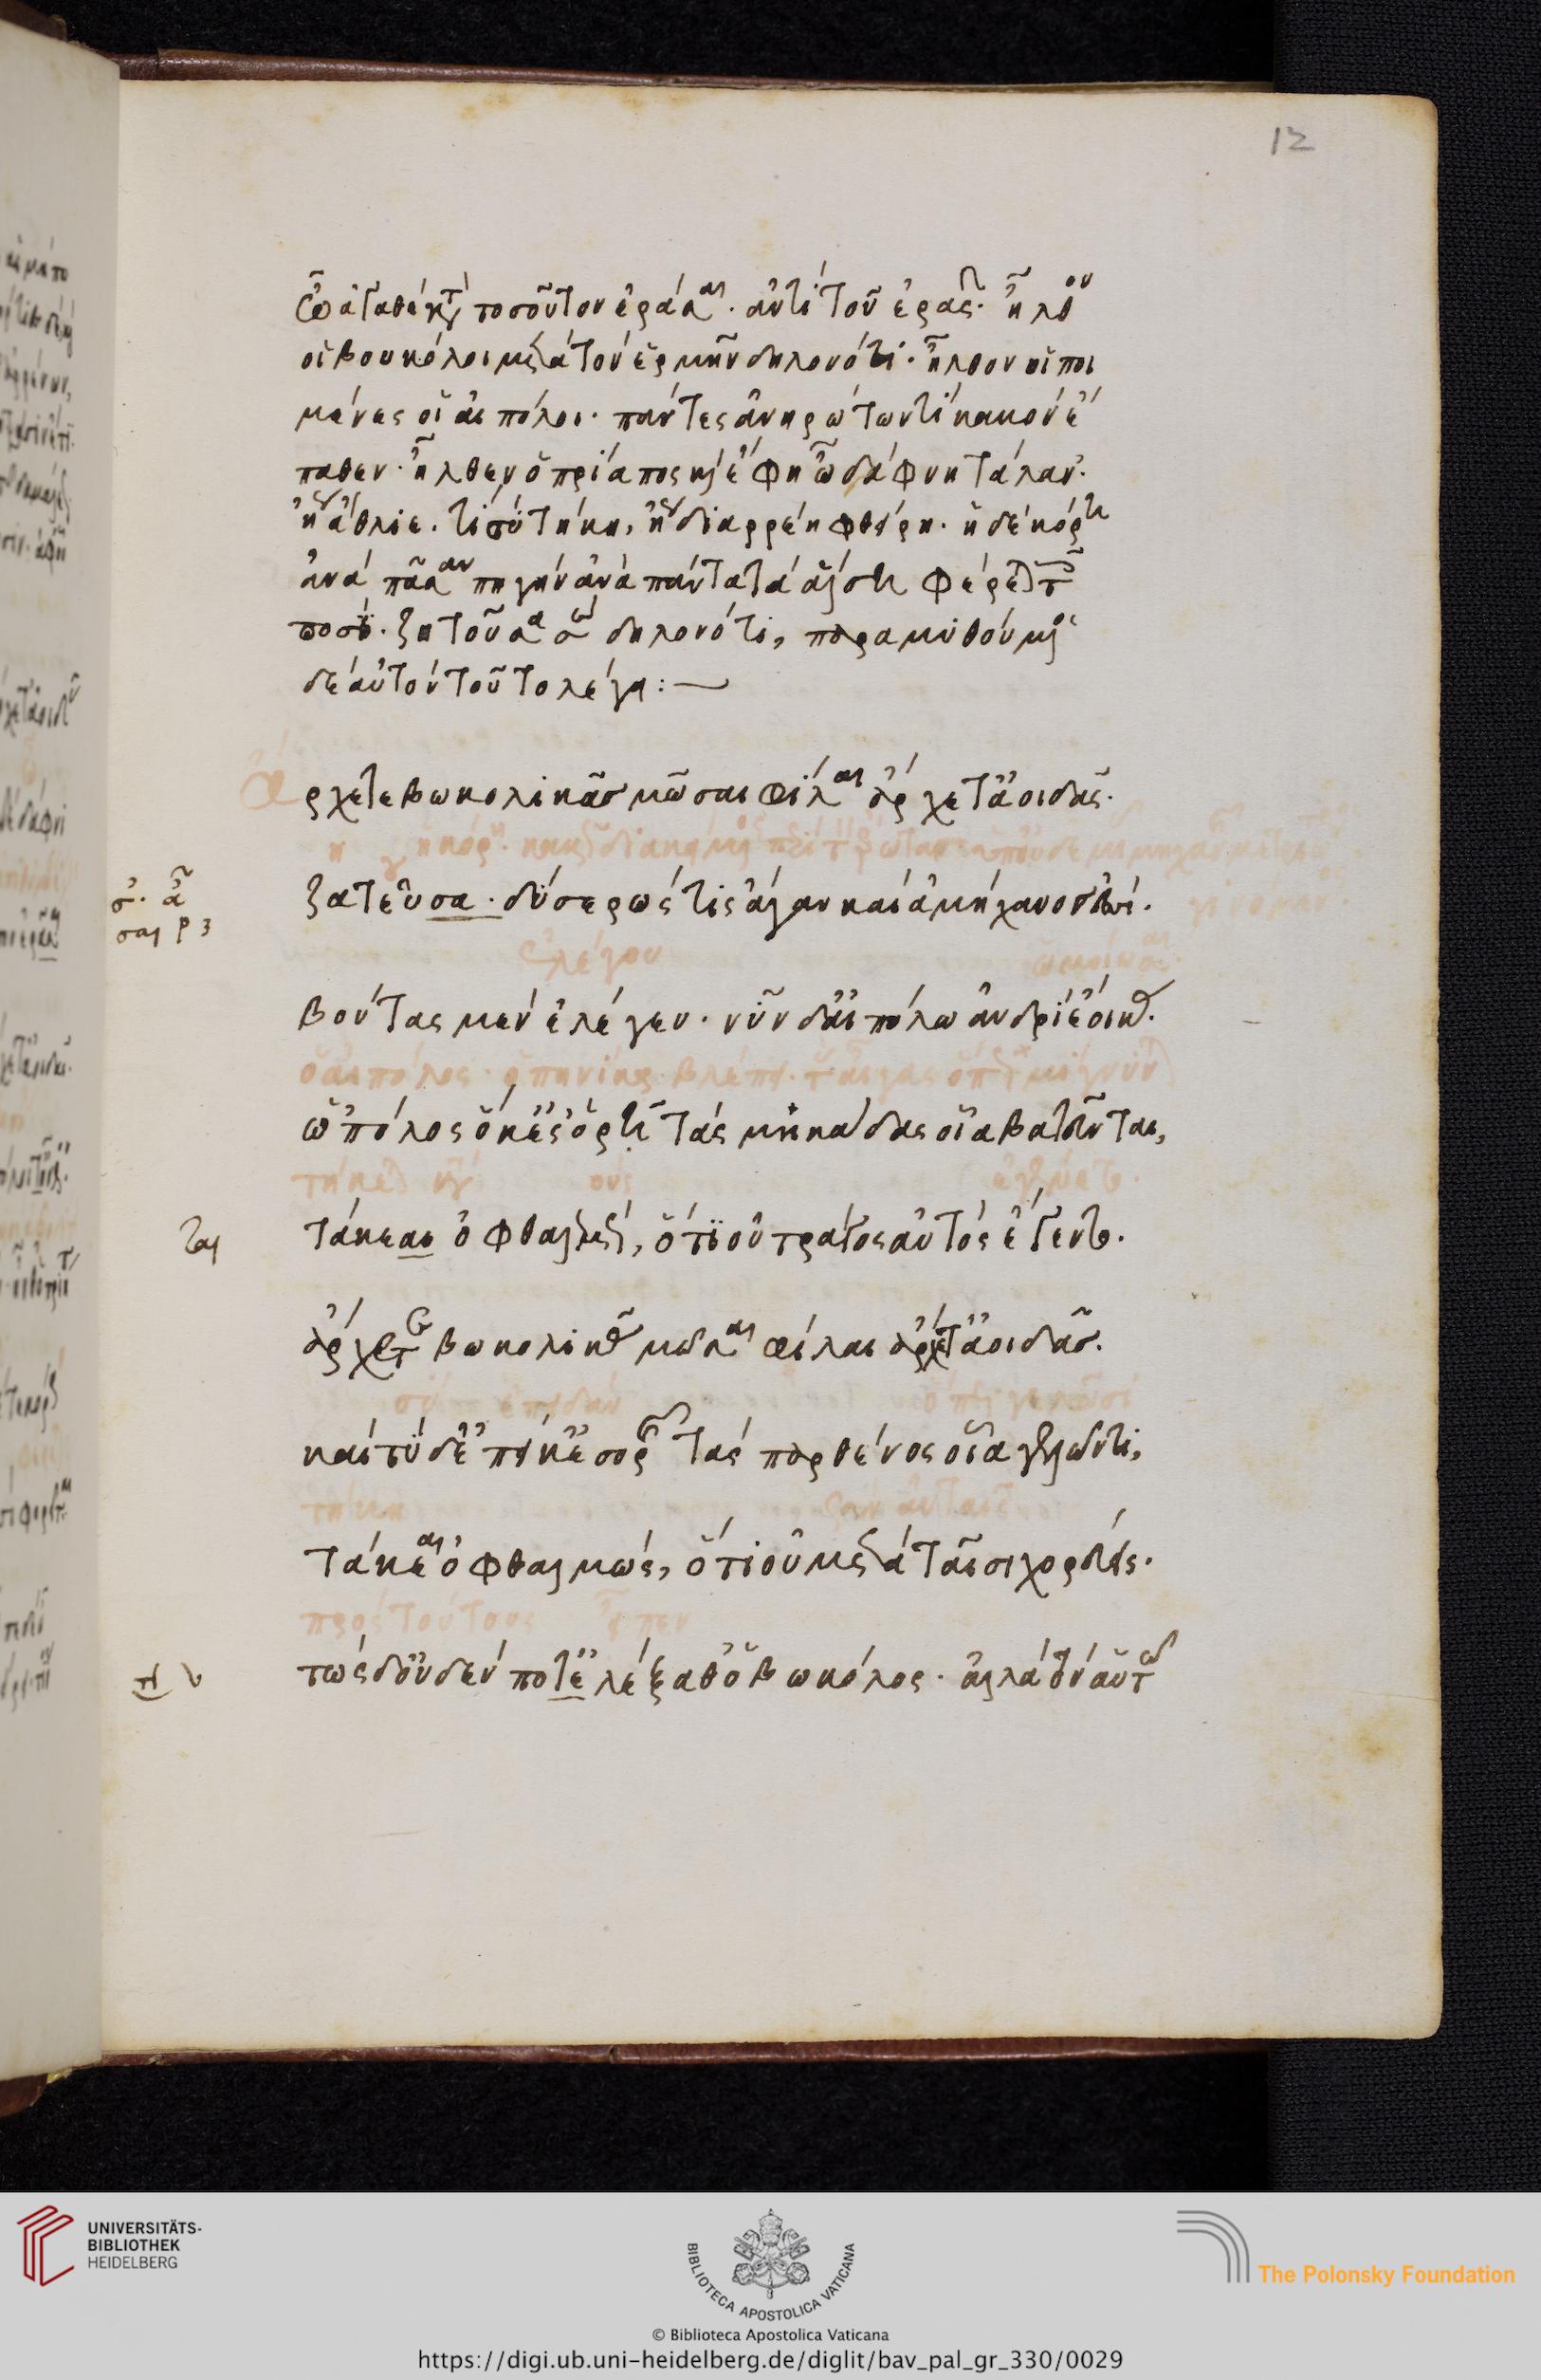 12
ὦ ἀγαθὲ τοσοῦτον ἐράσσαι. ἀντὶ τοῦ ἐρᾶς. ἦλθον
οἱ βουκόλοι μετὰ τὸν ἑρμῆν δηλονότι. ἦλθον οἱ ποι
μένες οἱ αἰπόλοι. πάντες ἀνηρώτων τί κακὸν ἔ
παθεν. ἦλθεν ὁ πρίαπος καὶ ἔφη ὦ δάφνη τάλαν.
ἤγουν ἄθλιε. τί σὺ τήκη, ἤγουν διαρρέη φθείρη. ἡ δὲ κόρη
ἀνὰ πᾶσαν πηγὴν ἀνὰ πάντα τὰ ἄλση φέρεται τοῖς
ποσί. ζητοῦσα σε δηλονότι, παραμυθούμενος
δὲ αὐτὸν τοῦτο λέγει:
Ἄρχετε βωκολικᾶσ μῶσαι φίλαι ἄρχετ' ἀοιδᾶς.
ζατεῦσα. δύσερως τις ἄγαν καὶ ἀμήχανος ἐσσί.
ἐλέγου
βούτας μὲν ἐλέγευ. νῦν δ' αἰπόλω ἀνδρὶ ἔοικας.
ὁ αἰπόλος
ᾡπόλος ὅκκ' ἐσορῆ τὰς μηκάδας οἷα βατεῦνται,
τήκεται
τάκεται ὀφθαλμώς, ὅτι οὐ τράγος αὐτὸς ἔγεντο.
ται
ἄρχετε βωκολικᾶς μῶσαι φίλαι ἄρχετ' ἀοιδᾶσ.
καὶ τὺ δ' ἐπεί κ' ἐσορῆς τὰς παρθένος οἷα γελῶντι,
τάκεαι ὀφθαλμώς, ὅτι οὐ μετὰ ταῖσι χορεύεις.
πρὸς τούτους εἶπεν
τὼς δ' οὐδὲν ποτελέξαθ' ὁ βωκόλος. ἀλλὰ τὸν αὐτῶ
UNIVERSITÄTS-
BIBLIOTHEK
HEIDELBERG
BIBLIOTECA APOSTOLICA VATICANA
The Polonsky Foundation
© Biblioteca Apostolica Vaticana
https://digi.ub.uni-heidelberg.de/diglit/bav_pal_gr_330/0029